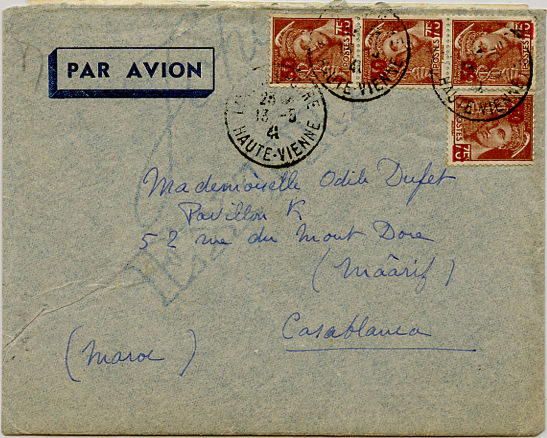 PAR AVION
50 75 POSTES
50 75 POSTES
50 75 POSTES
75 POSTES
HAUTE-VIENNE
41
HAUTE-VIENNE
HAUTE-VIENNE
13 -5
41
Mademoiselle Odile Dufet
Pavillon K
52 rue du Mont Dore
(Mâarif)
Casablanca
(Maroc)